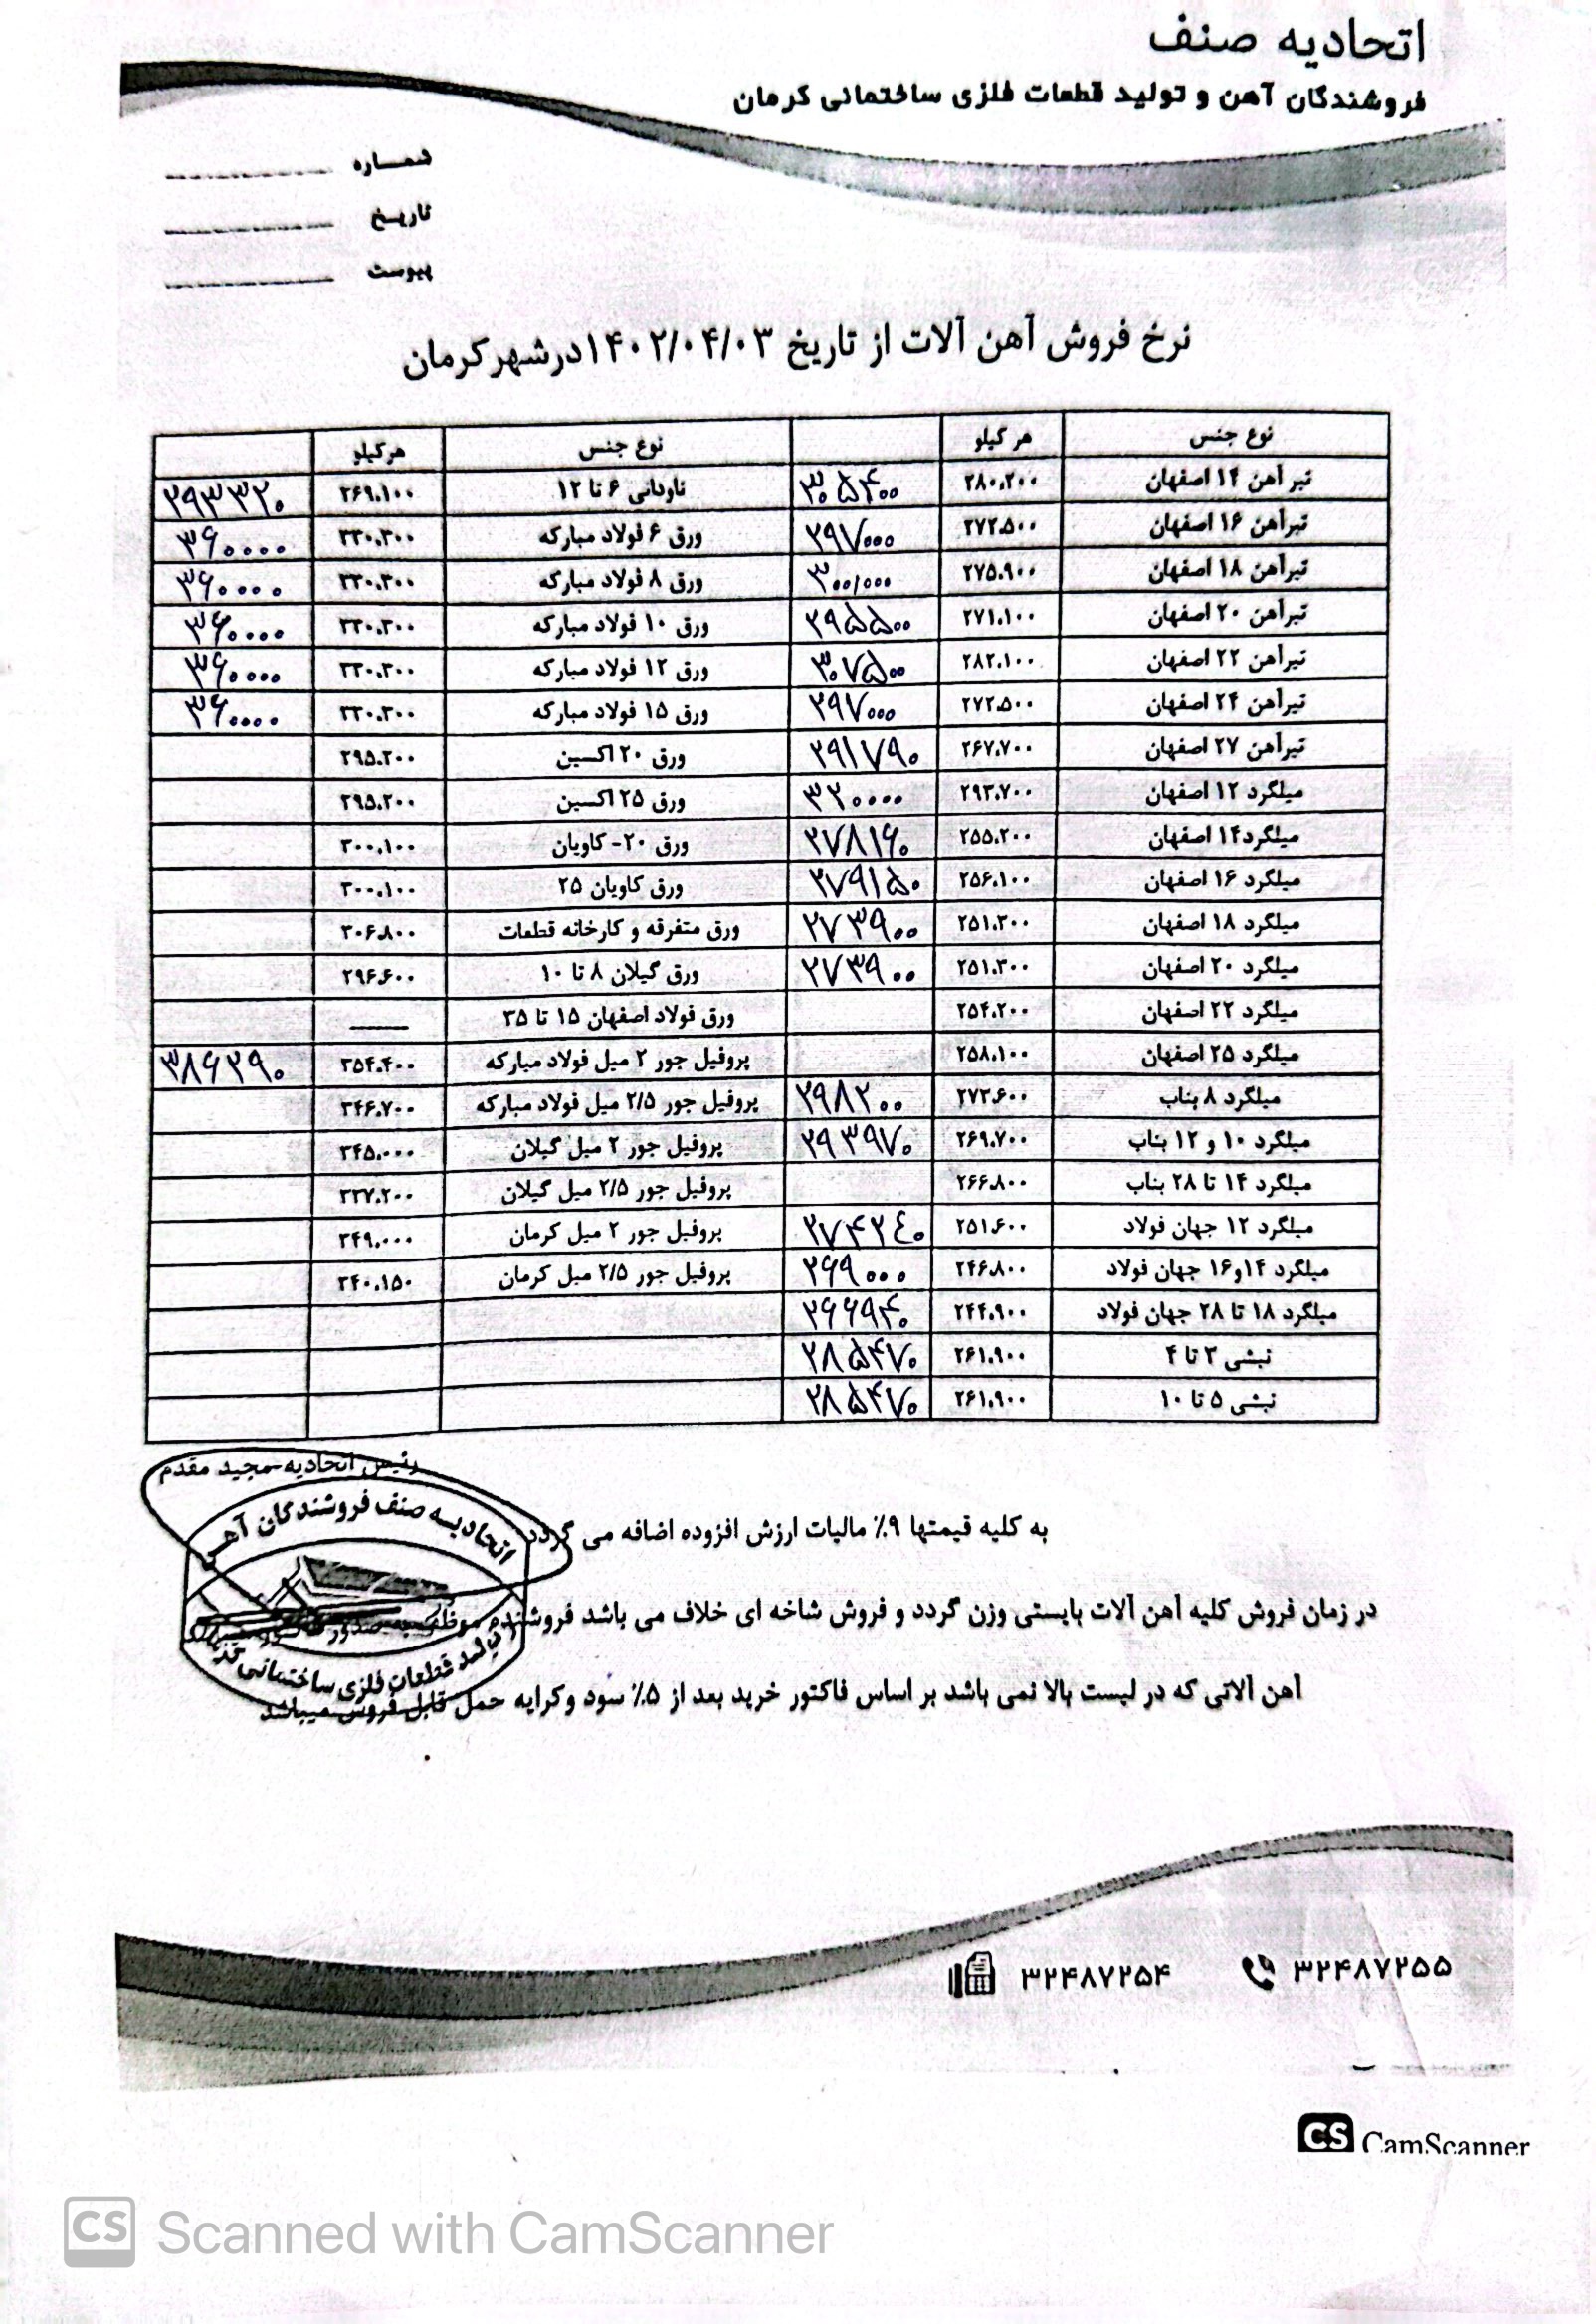 اتحادیه صنف
فروشندگان آهن و تولید قطعات فلزی ساختمانی کرمان
شماره
تاریخ
پیوست
نرخ فروش آهن آلات از تاریخ ۱۴۰۲/۰۴/۰۳ درشهر کرمان
نوع جنس هر کیلو نوع جنس هرکیلو
تیر آهن ۱۴ اصفهان ۲۸۰.۲۰۰ ۳۰۵۴۰۰ ناودانی ۶ تا ۱۲ ۲۶۹.۱۰۰ ۲۹۳۳۲۰
تیرآهن ۱۶ اصفهان ۲۷۲.۵۰۰ ۲۹۷۰۰۰ ورق ۶ فولاد مبارکه ۳۳۰.۳۰۰ ۳۶۰۰۰۰
تیرآهن ۱۸ اصفهان ۲۷۵.۹۰۰ ۳۰۰/۰۰۰ ورق ۸ فولاد مبارکه ۳۳۰.۳۰۰ ۳۶۰۰۰۰
تیرآهن ۲۰ اصفهان ۲۷۱.۱۰۰ ۲۹۵۵۰۰ ورق ۱۰ فولاد مبارکه ۳۳۰.۳۰۰ ۳۶۰۰۰۰
تیرآهن ۲۲ اصفهان ۲۸۲.۱۰۰ ۳۰۷۵۰۰ ورق ۱۲ فولاد مبارکه ۳۳۰.۳۰۰ ۳۶۰۰۰۰
تیرآهن ۲۴ اصفهان ۲۷۲.۵۰۰ ۲۹۷۰۰۰ ورق ۱۵ فولاد مبارکه ۳۳۰.۳۰۰ ۳۶۰۰۰۰
تیرآهن ۲۷ اصفهان ۲۶۷.۷۰۰ ۲۹۱۷۹۰ ورق ۲۰ اکسین ۲۹۵.۲۰۰
میلگرد ۱۲ اصفهان ۲۹۳.۷۰۰ ۳۲۰۰۰۰ ورق ۲۵ اکسین ۲۹۵.۲۰۰
میلگرد۱۴ اصفهان ۲۵۵.۲۰۰ ۲۷۸۱۶۰ ورق ۲۰- کاویان ۳۰۰.۱۰۰
میلگرد ۱۶ اصفهان ۲۵۶.۱۰۰ ۲۷۹۱۵۰ ورق کاویان ۲۵ ۳۰۰.۱۰۰
میلگرد ۱۸ اصفهان ۲۵۱.۳۰۰ ۲۷۳۹۰۰ ورق متفرقه و کارخانه قطعات ۳۰۶.۸۰۰
میلگرد ۲۰ اصفهان ۲۵۱.۳۰۰ ۲۷۳۹۰۰ ورق گیلان ۸ تا ۱۰ ۲۹۶.۶۰۰
میلگرد ۲۲ اصفهان ۲۵۴.۲۰۰ ورق فولاد اصفهان ۱۵ تا ۳۵ ——
میلگرد ۲۵ اصفهان ۲۵۸.۱۰۰ پروفیل جور ۲ میل فولاد مبارکه ۳۵۴.۴۰۰ ۳۸۶۲۹۰
میلگرد ۸ بناب ۲۷۳.۶۰۰ ۲۹۸۲۰۰ پروفیل جور ۲/۵ میل فولاد مبارکه ۳۴۶.۷۰۰
میلگرد ۱۰ و ۱۲ بناب ۲۶۹.۷۰۰ ۲۹۳۹۷۰ پروفیل جور ۲ میل گیلان ۳۴۵.۰۰۰
میلگرد ۱۴ تا ۲۸ بناب ۲۶۶.۸۰۰ پروفیل جور ۲/۵ میل گیلان ۳۳۷.۲۰۰
میلگرد ۱۲ جهان فولاد ۲۵۱.۶۰۰ ۲۷۴۲۴۰ پروفیل جور ۲ میل کرمان ۳۴۹.۰۰۰
میلگرد ۱۴و۱۶ جهان فولاد ۲۴۶.۸۰۰ ۲۶۹۰۰۰ پروفیل جور ۲/۵ میل کرمان ۳۴۰.۱۵۰
میلگرد ۱۸ تا ۲۸ جهان فولاد ۲۴۴.۹۰۰ ۲۶۶۹۴۰
نبشی ۳ تا ۴ ۲۶۱.۹۰۰ ۲۸۵۴۷۰
نبشی ۵ تا ۱۰ ۲۶۱.۹۰۰ ۲۸۵۴۷۰
رئیس اتحادیه-مجید مقدم
اتحادیه صنف فروشندگان آهن
به کلیه قیمتها ۹٪ مالیات ارزش افزوده اضافه می گردد
در زمان فروش کلیه آهن آلات بایستی وزن گردد و فروش شاخه ای خلاف می باشد فروشنده موظف به صدور
تولید قطعات فلزی ساختمانی
آهن آلاتی که در لیست بالا نمی باشد بر اساس فاکتور خرید بعد از ۵٪ سود وکرایه حمل قابل فروش میباشد
۳۲۴۸۷۲۵۵ ۳۲۴۸۷۲۵۴
CS CamScanner
CS Scanned with CamScanner